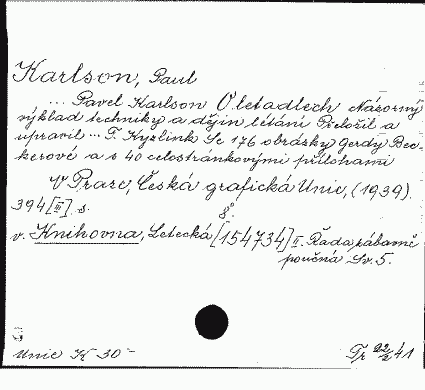 Karlson, Paul
... Pavel Karlson O letadlech Názorný
výklad techniky a dějin létání Přeložil a
upravil ... F. Kyzlink Se 176 obrázky Gerdy Bec-
kerové a s 40 celostránkovými přílohami
V Praze, Česká grafická Unie, (1939).
394 [II] s. 8°.
v. Knihovna, Letecká [154734] II. Řada zábavně
poučná Sv. 5.
Unie K 30-
Tr 22/2 41